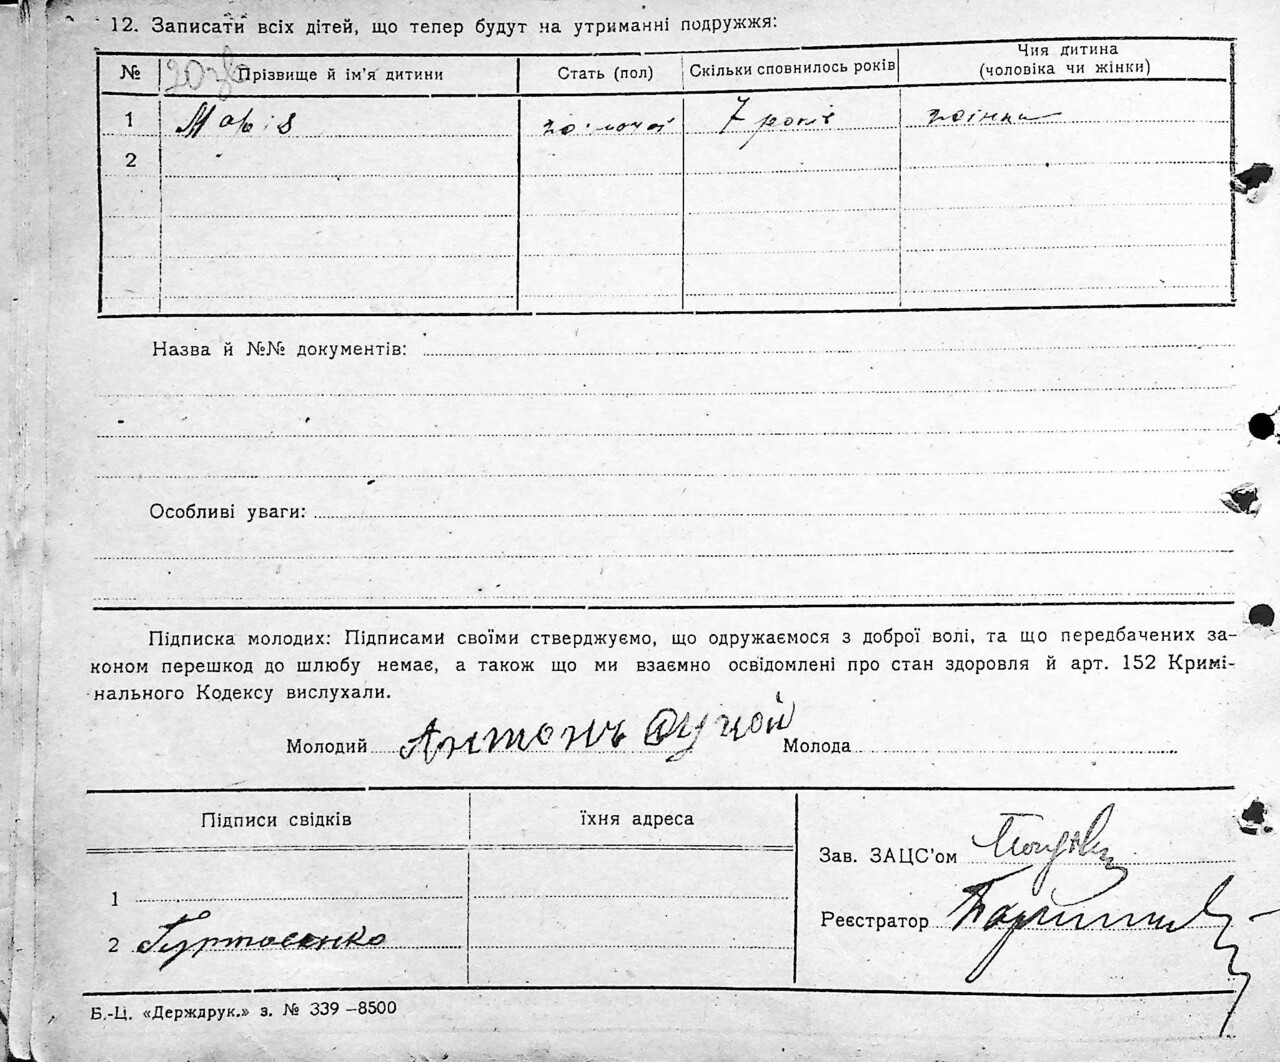 12. Записати всіх дітей, що тепер будут на утриманні подружжя:
№ Прізвище й ім'я дитини Стать (пол) Скільки сповнилось років Чия дитина (чоловіка чи жінки)
1 Марія жіночої 7 років жінки
2
Назва й №№ документів:
Особливі уваги:
Підписка молодих: Підписами своїми стверджуємо, що одружаємося з доброї волі, та що передбачених за-
коном перешкод до шлюбу немає, а також що ми взаємно освідомлені про стан здоровля й арт. 152 Кримі-
нального Кодексу вислухали.
Молодий Антонъ Молода
Підписи свідків їхня адреса
Зав. ЗАЦС'ом
1
Реєстратор
2
Б.-Ц. «Держдрук.» з. № 339 –8500